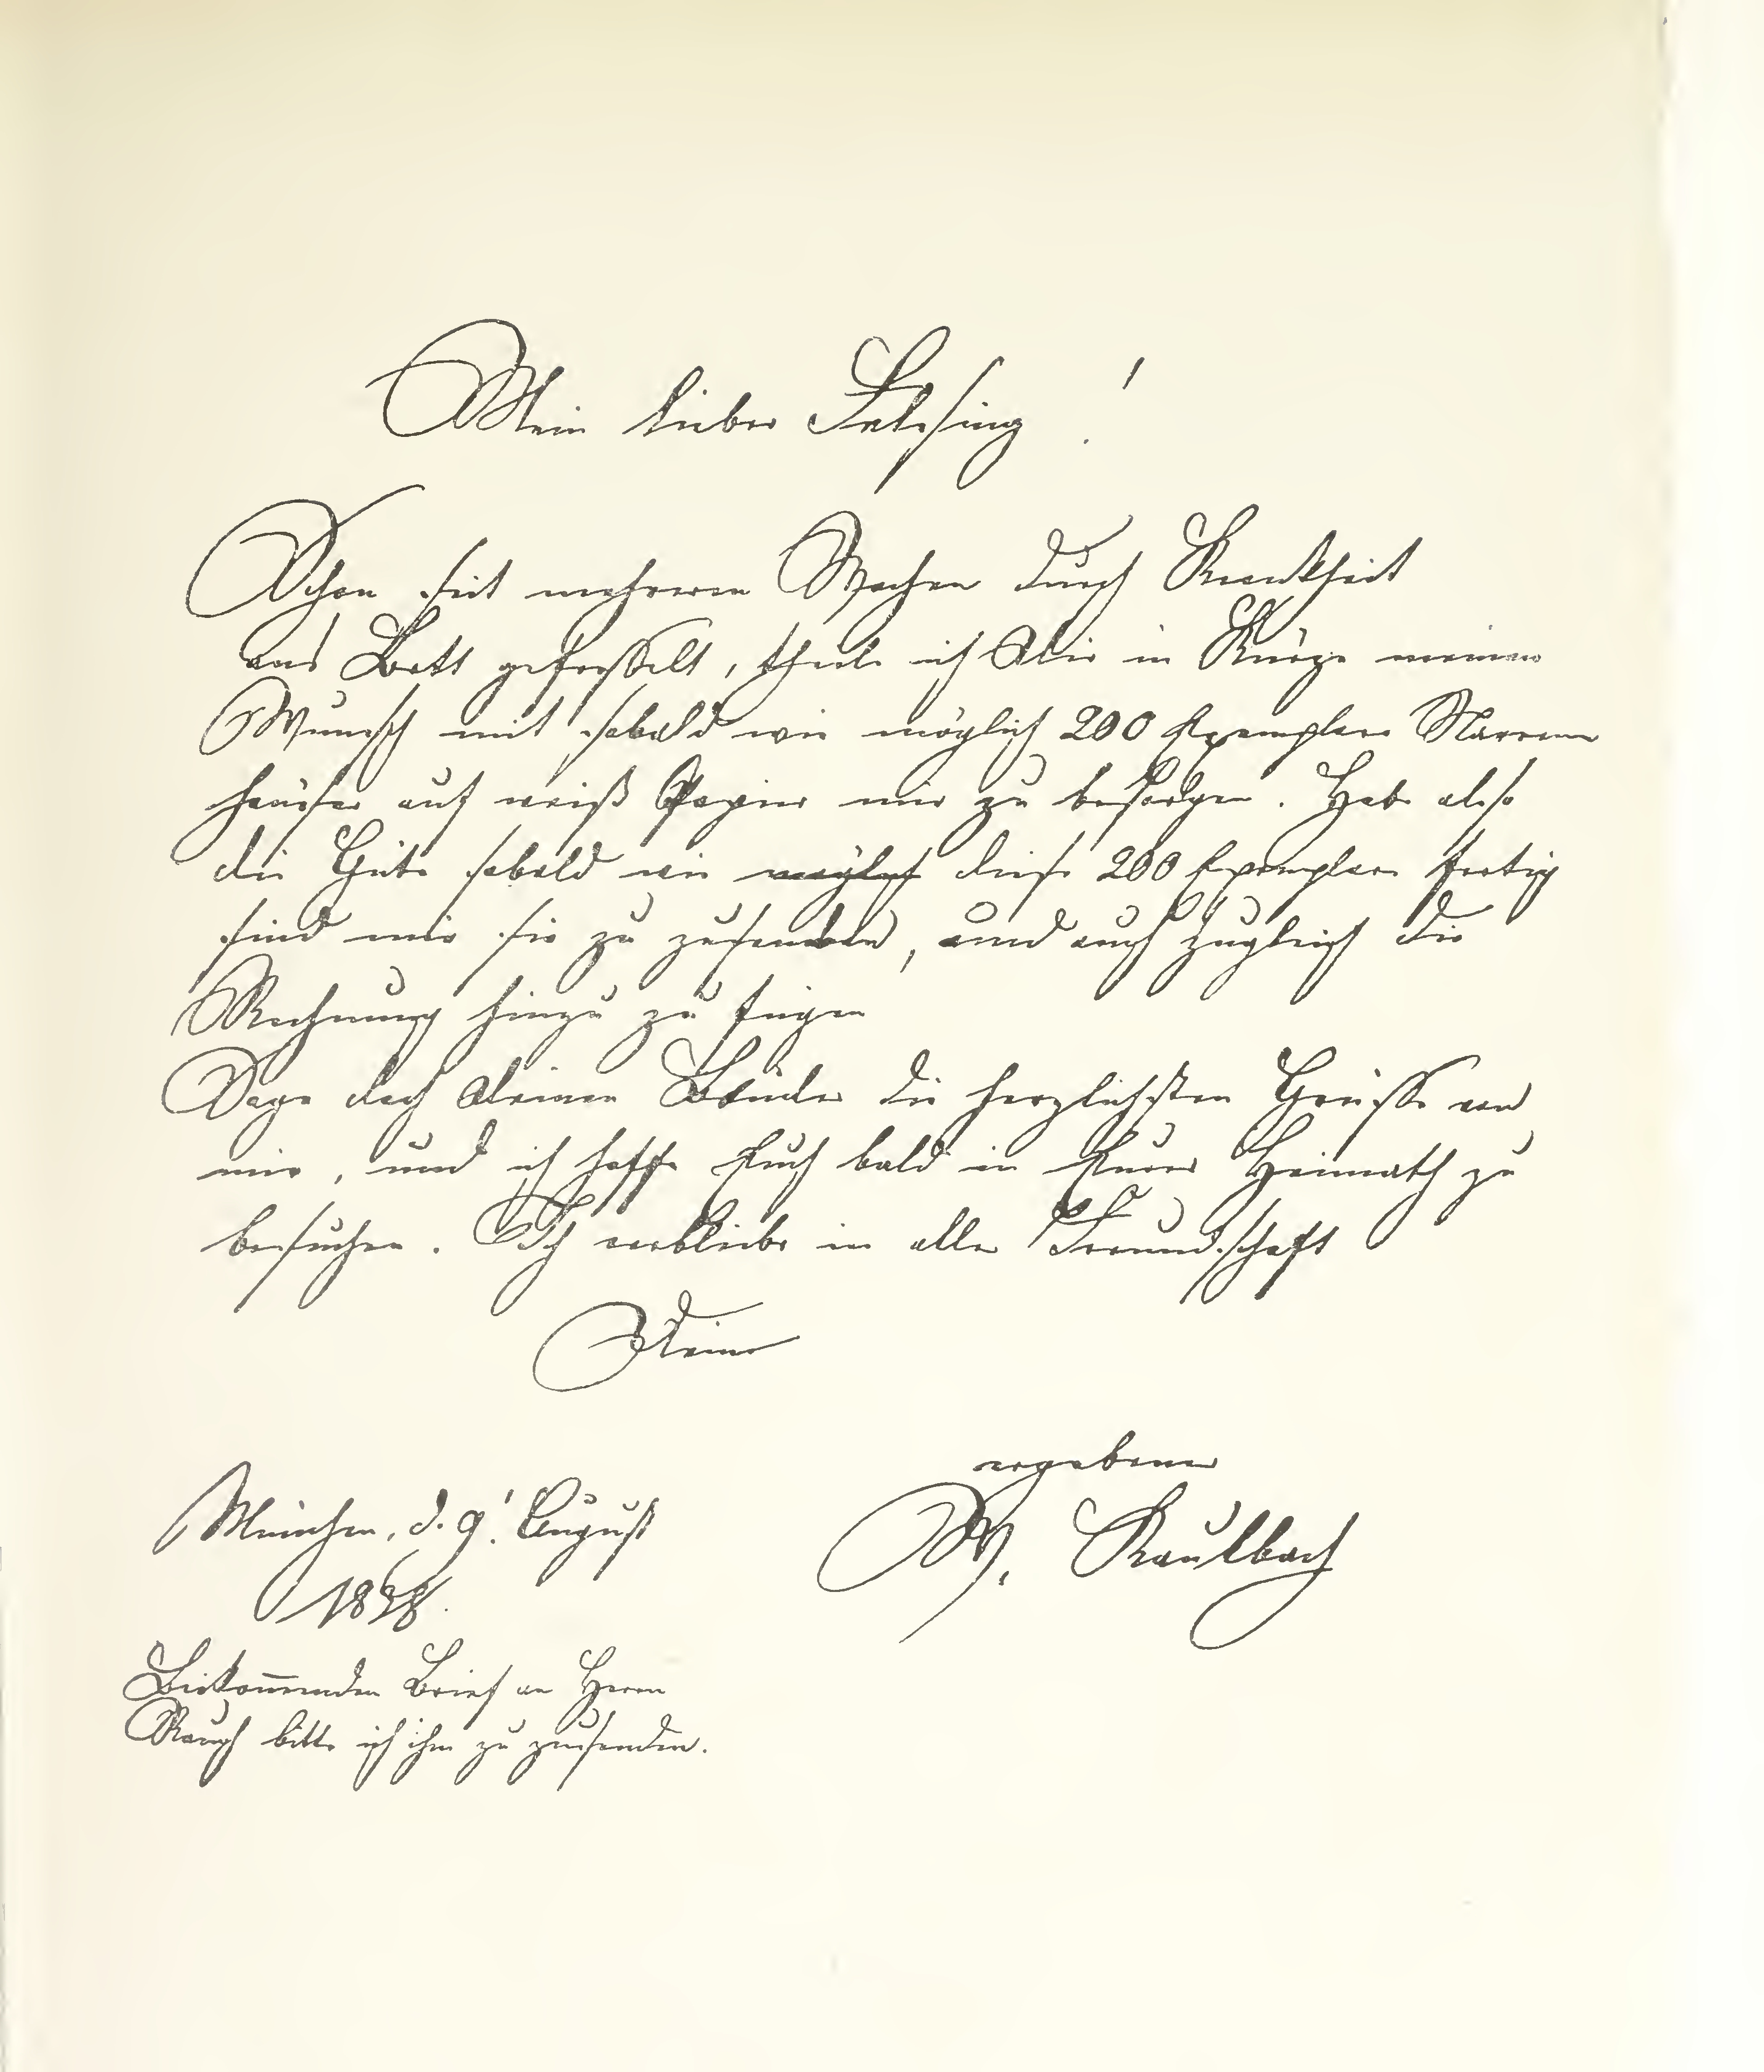 Mein lieber Felssing!
Schon seit mehreren Wochen durch Krankheit
ans Bett gefesselt, theile ich Dir in Kürze meinen
Wunsch mit sobald wie möglich 200 Exemplare Narren
häuser auf weiß Papier mir zu besorgen. Habe also
die Güte sobald wie möglich diese 200 Exemplare fertig
sind mir sie zu zusenden, und auch zugleich die
Rechnung hinzu zu fügen
Sage doch Deinen Brüder die herzlichsten Grüsse von
mir, und ich hoffe Euch bald in Eurer Heimath zu
besuchen. Ich verbleibe in aller Freundschaft
Deiner
ergebener
W. Kaulbach
München, d. 9! August
1838.
Beikom̅enden Brief an Herrn
Rauch bitte ich ihm zu zusenden.